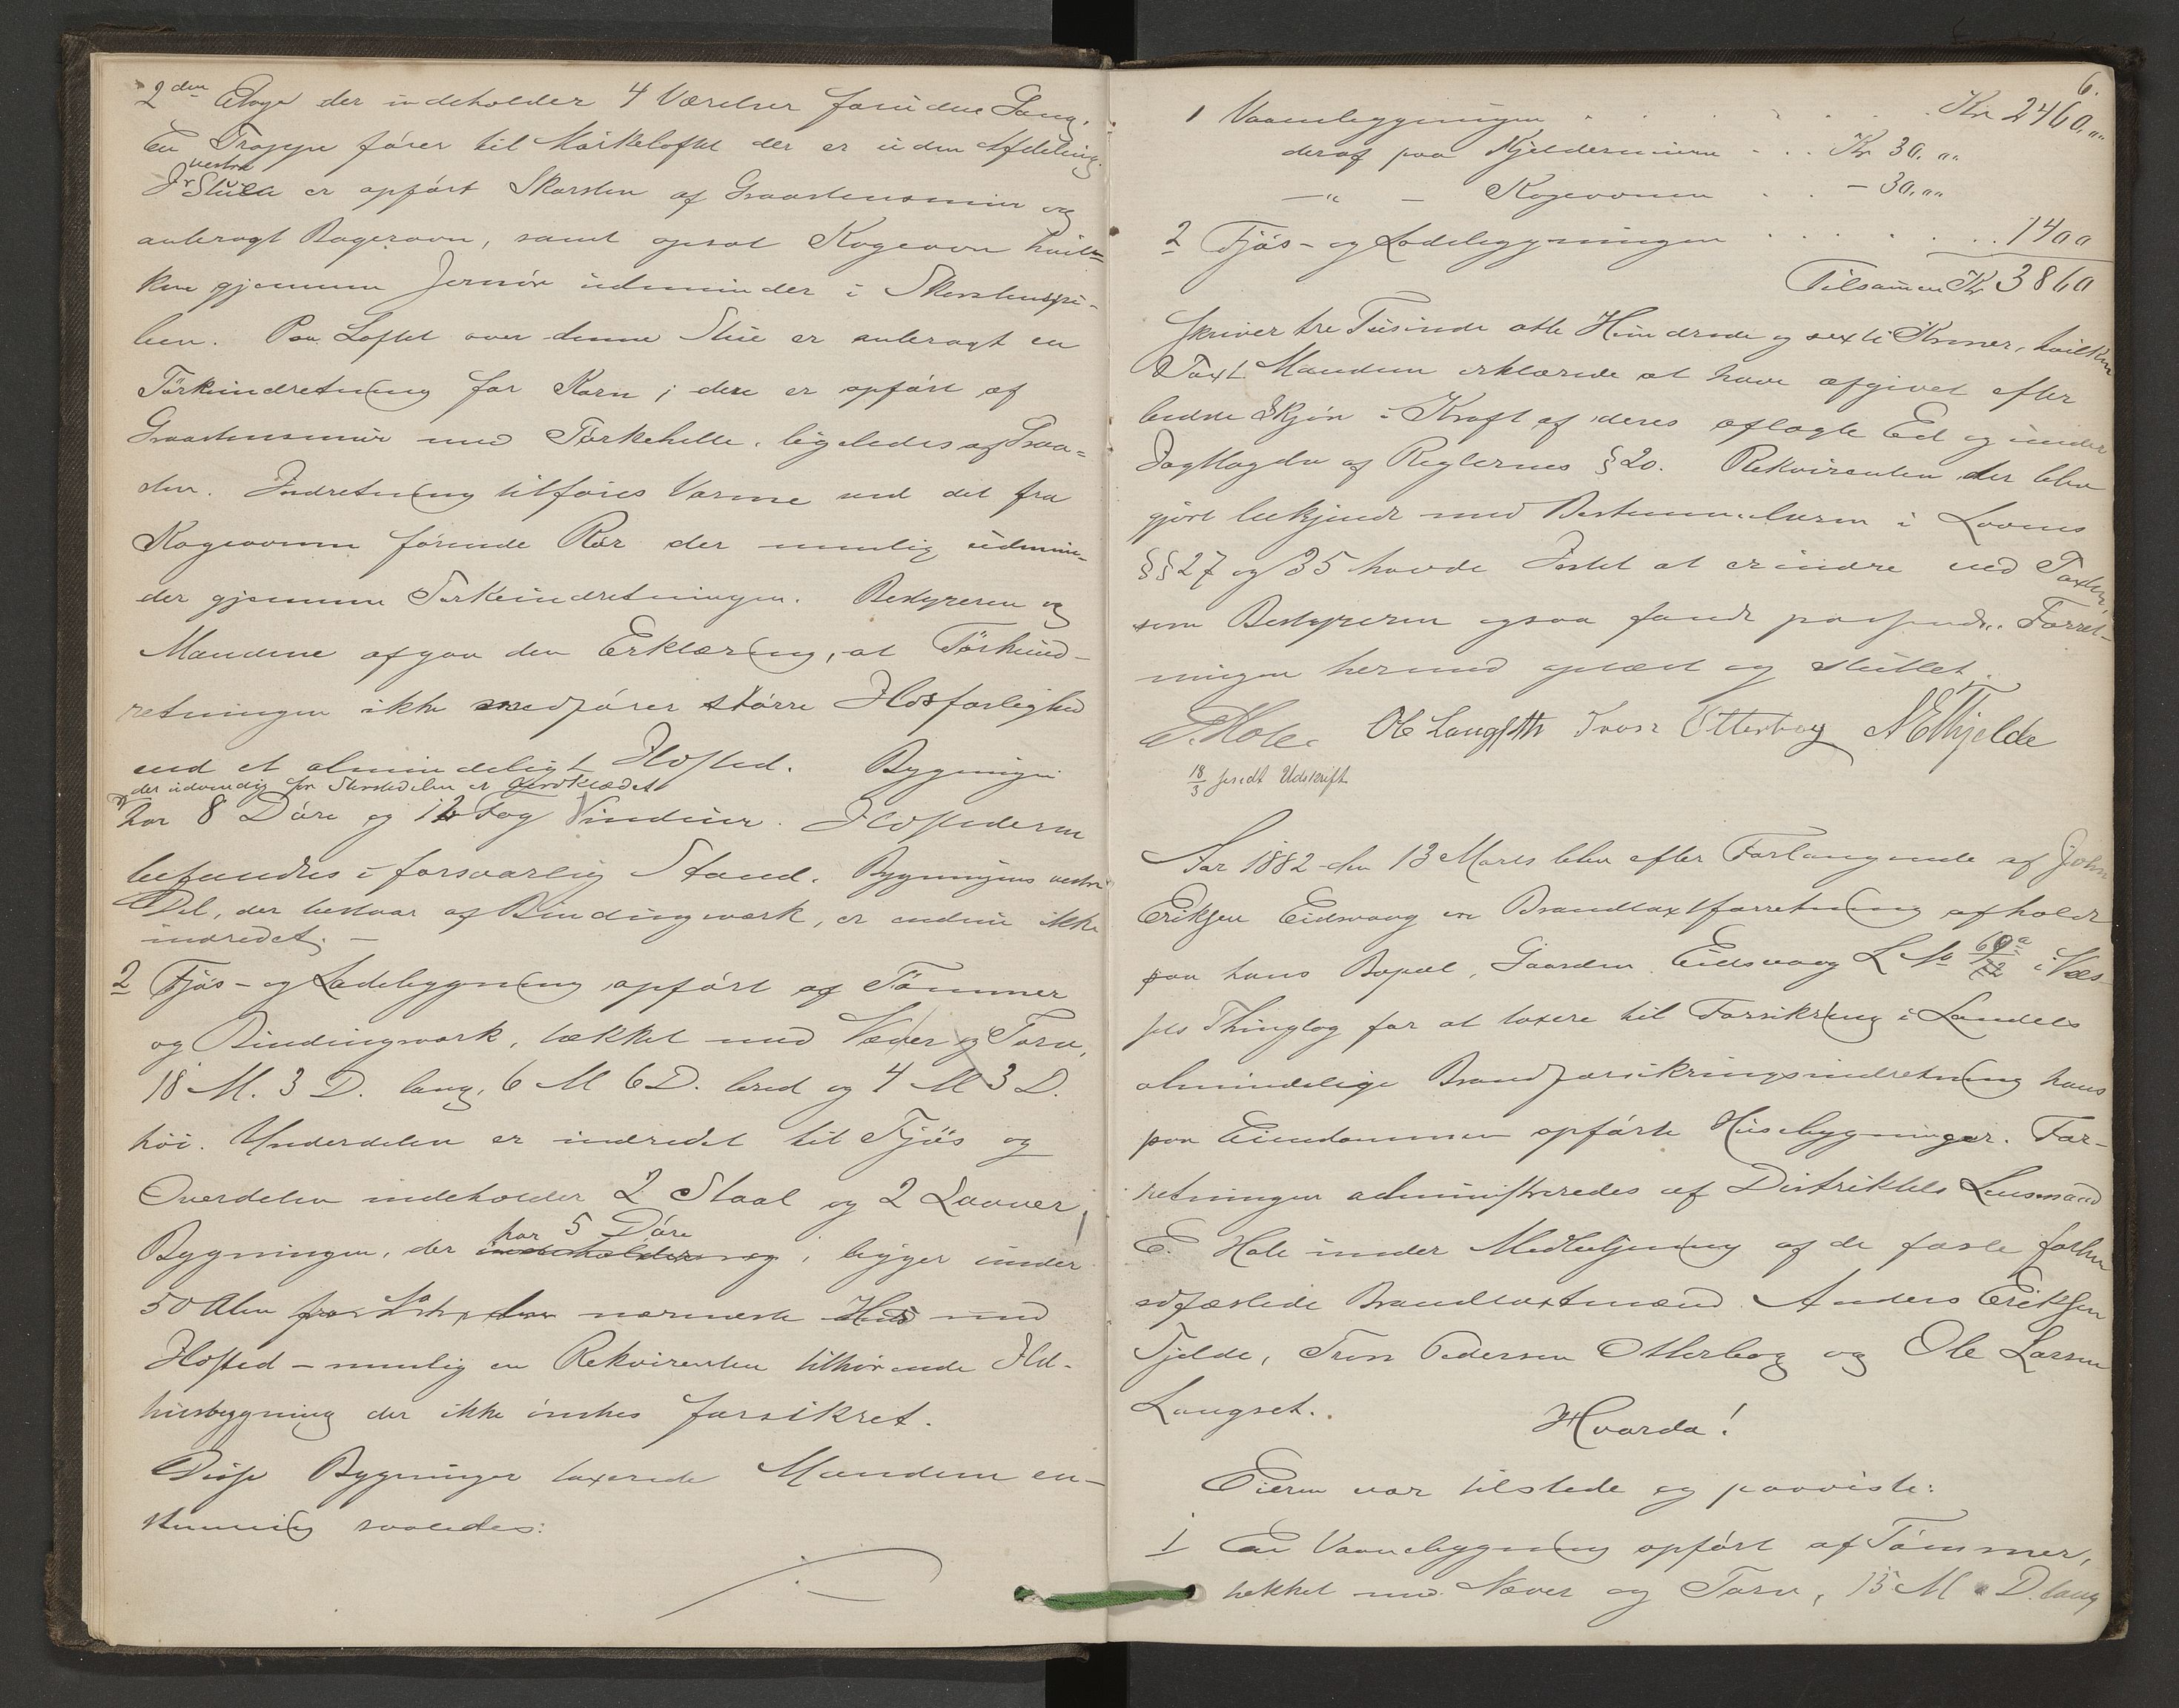 2den Etage der indeholder 4 Værelser foruden Gang.
En Trappe fører til Mørkeloftet der er uden Afdeling.
I vestre Stue er opført Skorsten af Graastensmur og
anbragt Bagerovn, samt opsat Kogeovn hvil-
ken gjennem Jernrør udmunder i Skorstenspi-
ben. Paa Loftet over denne Stue er anbragt en
Tørkeindretning for Korn; den er opført af
Graastensmur med Tørkehelle ligeledes af Graa-
sten. Indretning tilføres Varme ved det fra
Kogeovnen førende Rør der nemlig udmun-
der gjennem Tørkeindretningen. Bestyreren og
Mændene afgav den Erklæring, at Tørkeind-
retningen ikke medfører større Ildsfarlighed
end et almindeligt Ildsted. Bygningen
der udvendig paa Størstedelen er bordklædet
har 8 Døre og 12 Fag Vinduer. Ildstederne
befandtes i forsvarlig Stand. Bygningens vestre
Del, der bestaar af Bindingværk, er endnu ikke
indredet. –
2 Fjøs- og Ladebygning opført af Tømmer
og Bindingværk, tækket med Næver og Torv,
18 M. 3 D. lang, 6 M 6 D. bred og 4 M 3 D.
høi. Underdelen er indredet til Fjøs og
Overdelen indeholder 2 Staal og 2 Laaver.
Bygningen, der indeholder og har 5 Døre, ligger under
50 Alen fra nærmeste Hus med
Ildsted – nemlig en Rekvirenten tilhørende Ild-
husbygning der ikke ønskes forsikret.
Disse Bygninger taxerede Mændene en-
stemmig saaledes:
6.
1 Vaaningbygningen . . . . . Kr 2460,""
deraf paa Kjeldermuren . . . Kr 30.""
—" – Kogeovnen . . – 30.""
2 Fjøs- og Ladebygningen . . . . . . . 1400
Tilsammen Kr 3860
skriver tre Tusinde otte Hundrede og sexti Kroner, hvilken
Taxt Mændene erklærede at have afgivet efter
bedste Skjøn i Kraft af deres aflagte Ed og under
Iagttagelse af Reglernes § 20. Rekvirenten der blev
gjort bekjendt med Bestemmelserne i Lovens
§§ 27 og 35 havde Intet at erindre ved Taxten,
som Bestyreren ogsaa fandt passende. Forret-
ningen hermed oplæst og sluttet.
E. Hole Ole Langseth Iver Otterbog A E Tjelde
18/3 sendt Udskrift
Aar 1882 den 13 Marts blev efter Forlangende af John
Eriksen Eidsvaag en Brandtaxtforretning afholdt
paa hans Bopæl, Gaarden Eidsvaag L No 69a i Næs-
sets Thinglag for at taxere til Forsikring i Landets
almindelige Brandforsikringsindretning hans
paa Eiendommen opførte Husebygninger. For-
retningen administreredes af Distriktets Lensmand
E. Hole under Medbetjening af de faste forhen
edfæstede Brandtaxtmænd Anders Eriksen
Tjelde, Iver Pedersen Otterbog og Ole Larsen
Langset.
Hvorda!
Eieren var tilstede og paaviste:
1 En Vaanebygning opført af Tømmer,
tækket med Næver og Torv, 15 M " D. lang